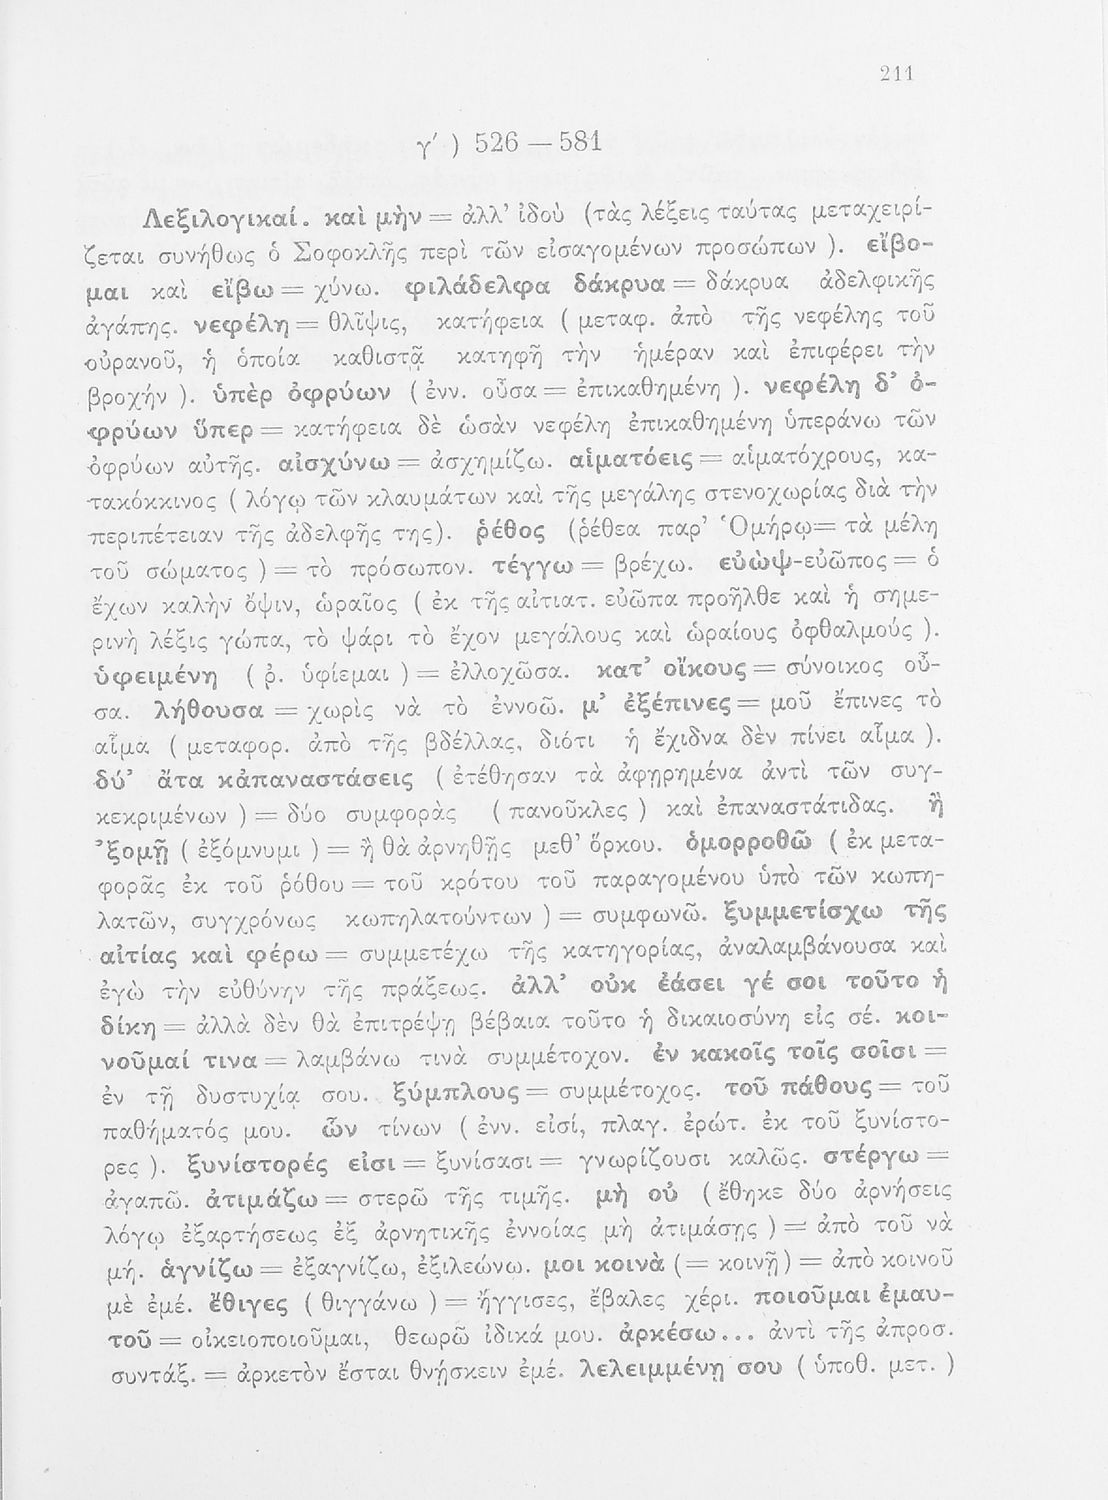 211
γ′ ) 526 — 581
Λεξιλογικαί. καὶ μὴν = ἀλλ’ ἰδοὺ (τὰς λέξεις ταύτας μεταχειρί-
ζεται συνήθως ὁ Σοφοκλῆς περὶ τῶν εἰσαγομένων προσώπων ). εἴβο-
μαι καὶ εἴβω = χύνω. φιλάδελφα δάκρυα = δάκρυα ἀδελφικῆς
ἀγάπης. νεφέλη = θλῖψις, κατήφεια ( μεταφ. ἀπὸ τῆς νεφέλης τοῦ
οὐρανοῦ, ἡ ὁποία καθιστᾷ κατηφῆ τὴν ἡμέραν καὶ ἐπιφέρει τὴν
βροχήν ). ὑπὲρ ὀφρύων ( ἐνν. οὖσα = ἐπικαθημένη ). νεφέλη δ’ ὀ-
φρύων ὕπερ = κατήφεια δὲ ὡσὰν νεφέλη ἐπικαθημένη ὑπεράνω τῶν
ὀφρύων αὐτῆς. αἰσχύνω = ἀσχημίζω. αἱματόεις = αἱματόχρους, κα-
τακόκκινος ( λόγῳ τῶν κλαυμάτων καὶ τῆς μεγάλης στενοχωρίας διὰ τὴν
περιπέτειαν τῆς ἀδελφῆς της). ῥέθος (ῥέθεα παρ’ Ὁμήρῳ= τὰ μέλη
τοῦ σώματος ) = τὸ πρόσωπον. τέγγω = βρέχω. εὐὼψ-εὐῶπος = ὁ
ἔχων καλὴν ὄψιν, ὡραῖος ( ἐκ τῆς αἰτιατ. εὐῶπα προῆλθε καὶ ἡ σημε-
ρινὴ λέξις γώπα, τὸ ψάρι τὸ ἔχον μεγάλους καὶ ὡραίους ὀφθαλμούς ).
ὑφειμένη ( ῥ. ὑφίεμαι ) = ἐλλοχῶσα. κατ’ οἴκους = σύνοικος οὖ-
σα. λήθουσα = χωρὶς νὰ τὸ ἐννοῶ. μ’ ἐξέπινες = μοῦ ἔπινες τὸ
αἷμα ( μεταφορ. ἀπὸ τῆς βδέλλας, διότι ἡ ἔχιδνα δὲν πίνει αἷμα ).
δύ’ ἄτα κἀπαναστάσεις ( ἐτέθησαν τὰ ἀφῃρημένα ἀντὶ τῶν συγ-
κεκριμένων ) = δύο συμφορὰς ( πανοῦκλες ) καὶ ἐπαναστάτιδας. ἢ
’ξομῇ ( ἐξόμνυμι ) = ἢ θὰ ἀρνηθῇς μεθ’ ὅρκου. ὁμορροθῶ ( ἐκ μετα-
φορᾶς ἐκ τοῦ ῥόθου = τοῦ κρότου τοῦ παραγομένου ὑπὸ τῶν κωπη-
λατῶν, συγχρόνως κωπηλατούντων ) = συμφωνῶ. ξυμμετίσχω τῆς
αἰτίας καὶ φέρω = συμμετέχω τῆς κατηγορίας, ἀναλαμβάνουσα καὶ
ἐγὼ τὴν εὐθύνην τῆς πράξεως. ἀλλ’ οὐκ ἐάσει γέ σοι τοῦτο ἡ
δίκη = ἀλλὰ δὲν θὰ ἐπιτρέψῃ βέβαια τοῦτο ἡ δικαιοσύνη εἰς σέ. κοι-
νοῦμαί τινα = λαμβάνω τινὰ συμμέτοχον. ἐν κακοῖς τοῖς σοῖσι =
ἐν τῇ δυστυχίᾳ σου. ξύμπλους = συμμέτοχος. τοῦ πάθους = τοῦ
παθήματός μου. ὧν τίνων ( ἐνν. εἰσί, πλαγ. ἐρώτ. ἐκ τοῦ ξυνίστο-
ρες ). ξυνίστορές εἰσι = ξυνίσασι = γνωρίζουσι καλῶς. στέργω =
ἀγαπῶ. ἀτιμάζω = στερῶ τῆς τιμῆς. μὴ οὐ ( ἔθηκε δύο ἀρνήσεις
λόγῳ ἐξαρτήσεως ἐξ ἀρνητικῆς ἐννοίας μὴ ἀτιμάσῃς ) = ἀπὸ τοῦ νὰ
μή. ἁγνίζω = ἐξαγνίζω, ἐξιλεώνω. μοι κοινὰ (= κοινῇ) = ἀπὸ κοινοῦ
μὲ ἐμέ. ἔθιγες ( θιγγάνω ) = ἤγγισες, ἔβαλες χέρι. ποιοῦμαι ἐμαυ-
τοῦ = οἰκειοποιοῦμαι, θεωρῶ ἰδικά μου. ἀρκέσω... ἀντὶ τῆς ἀπροσ.
συντάξ. = ἀρκετὸν ἔσται θνῄσκειν ἐμέ. λελειμμένῃ σου ( ὑποθ. μετ. )